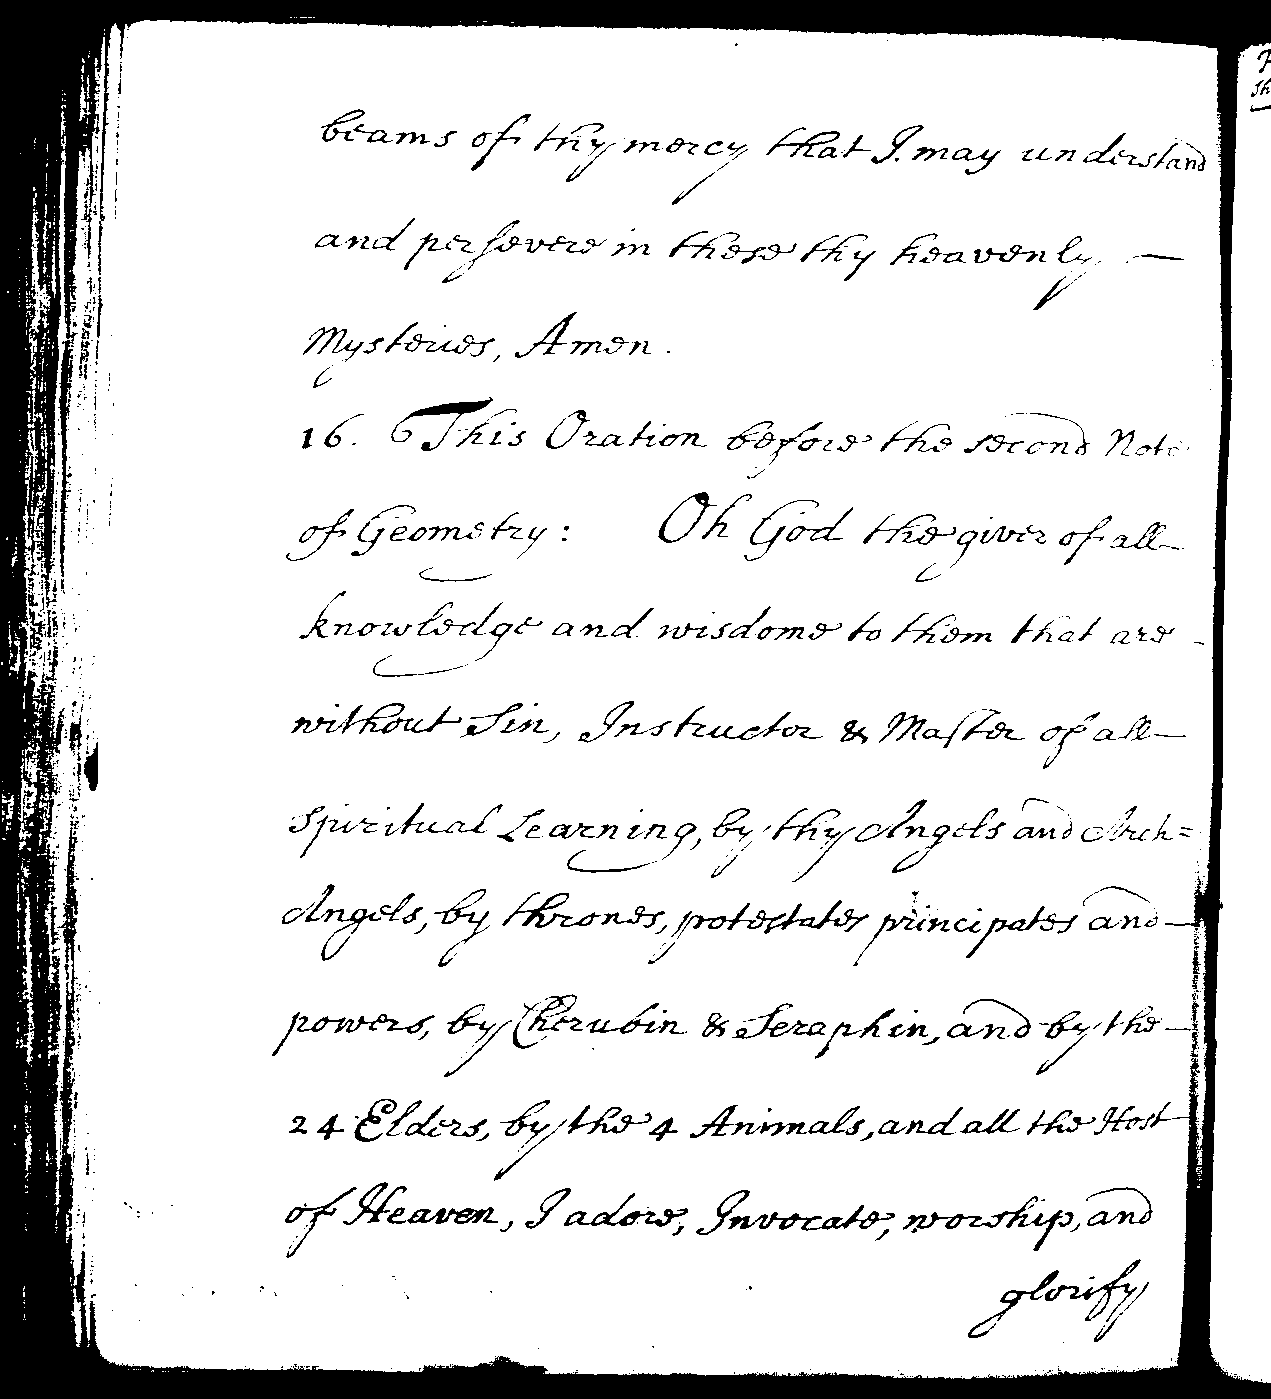 beams of thy mercy that I may understand
and persevere in these thy heavenly —
Mysteries, Amen.
16. This Oration before the second Note
of Geometry: Oh God the giver of all
knowledge and wisdome to them that are
without Sin, Instructor & Master of all
Spiritual Learning, by thy Angels and Arch=
Angels, by thrones, protestates principates and
powers, by Cherubin & Seraphin, and by the
24 Elders, by the 4 Animals, and all the Host
of Heaven, I adore, Invocate, worship, and
glorify